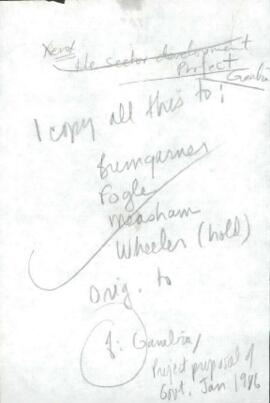 Xerox
the sector development
Project
Gambia
1 copy all this to:
Bumgarner
Fogle
Measham
Wheeler (hold)
Orig. to
f: Gambia/
Project proposal of
Govt. Jan 1976